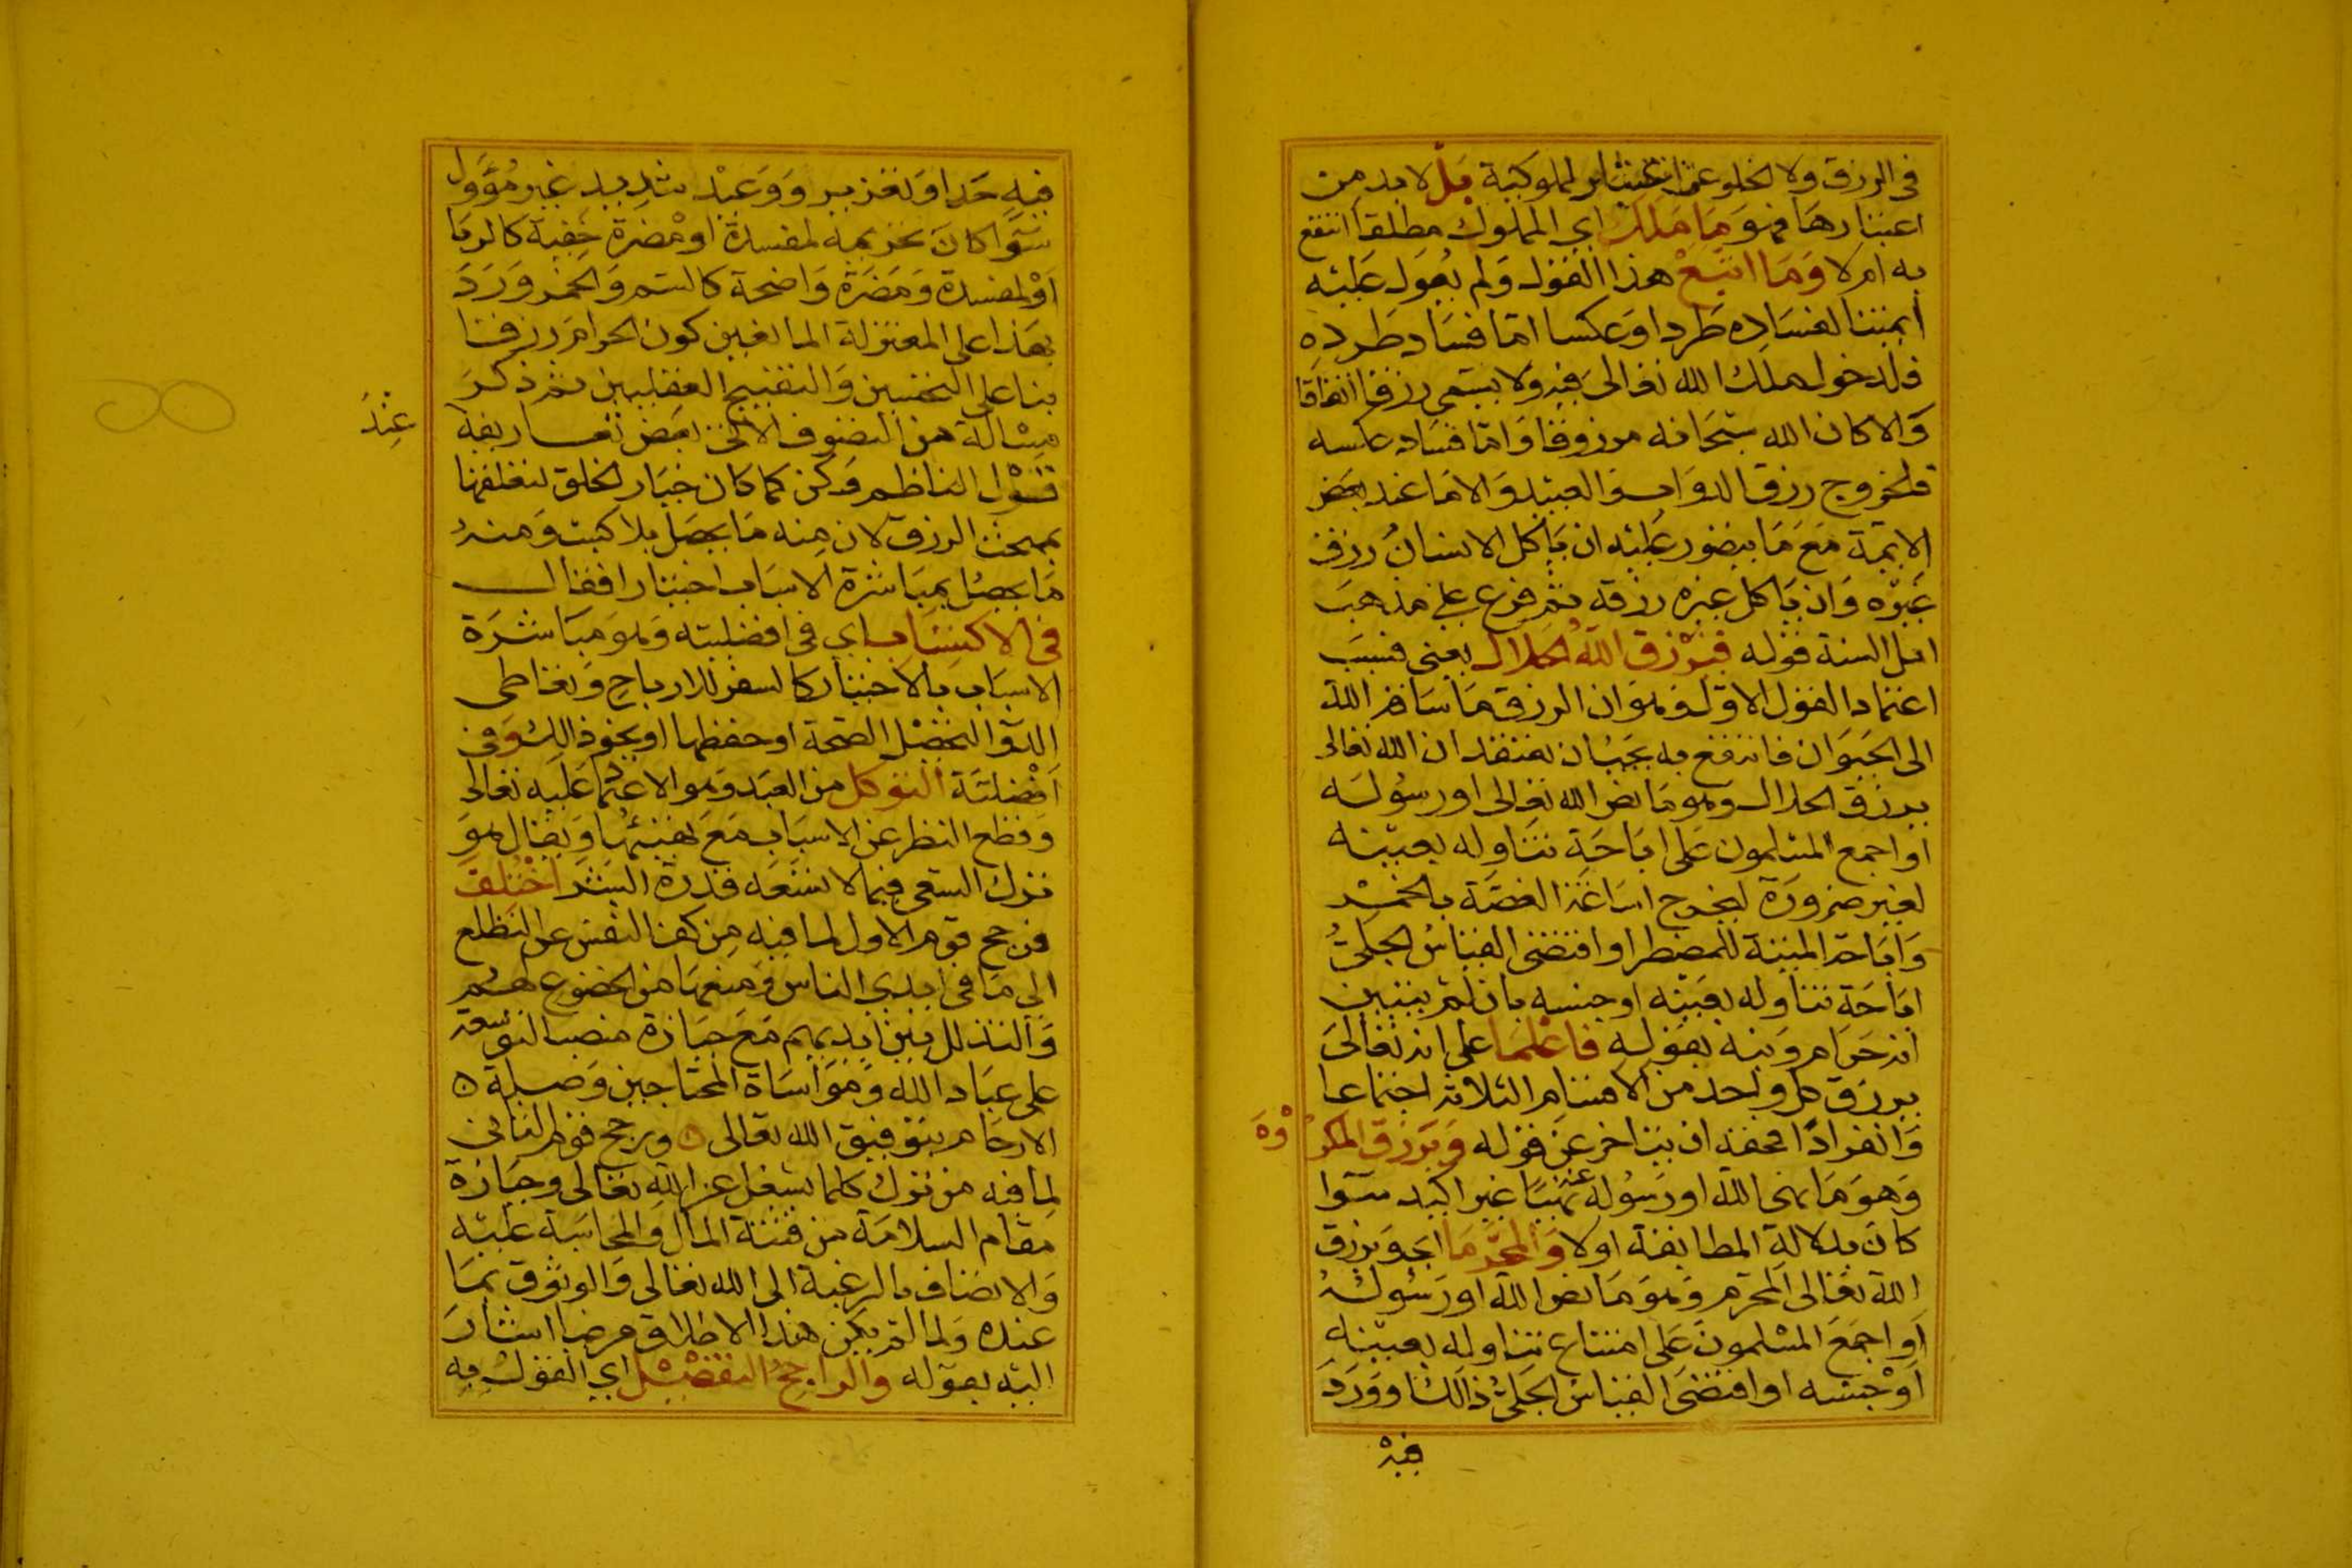 في الرزق ولا يخلو عن اعتبار المملوكية بل لا بد من
اعتبارها فهو ما ملك اي المملوك مطلقا انتفع
به ام لا وما اتبع هذا القول ولم يعول عليه
ايمتنا لفساده طردا وعكسا اما فساد طرده
فلدخول ملك الله تعالى فيه ولا يسمى رزقا اتفاقا
والا كان الله سبحانه مرزوقا واما فساد عكسه
فلخروج رزق الدواب والعبيد والاما عند بعض
الايمة مع ما يتصور عليه ان ياكل الانسان رزق
غيره وان ياكل غيره رزقه ثم فرع على مذهب
اهل السنة قوله فيرزق الله الحلال يعني فسبب
اعتماد القول الاول وهو ان الرزق ما ساقه الله
الى الحيوان فانتفع به يجب ان نعتقد ان الله تعالى
يرزق الحلال وهو ما نص الله تعالى او رسوله
او اجمع المسلمون على اباحة تناوله بعينه
لغير ضرورة ليخرج اساغة الغصة بالخمر
واباحة الميتة للمضطر او اقتضى القياس الجلي
اباحة تناوله بعينه او جنسه بان لم يتبين
انه حرام ونبه بقوله فاعلما على انه تعالى
يرزق كل واحد من الاقسام الثلاثة اجتماعا
وانفرادا فحقه ان يتاخر عن قوله ويرزق المكروه
وهو ما نهى الله او رسوله عنه نهيا غير اكيد سوا
كان بدلالة المطابقة او لا والمحرما اي ويرزق
الله تعالى المحرم وهو ما نص الله او رسوله
او اجمع المسلمون على امتناع تناوله بعينه
او جنسه او اقتضى القياس الجلي ذالك او ورد
فيه
فيه حد او تعزير او وعيد شديد غير مؤول
سوا كان تحريمه لمفسدة او مضرة خفية كالربا
او لمفسدة ومضرة واضحة كالسم والخمر ورد
بهذا على المعتزلة المانعين كون الحرام رزقا
بنا على التحسين والتقبيح العقليين ثم ذكر
مسالة من التصوف الاتي بعض تعاريفه عند
قول الناظم وكن كما كان خيار الخلق لتعلقها
بمبحث الرزق لان منه ما يحصل بلا كسب ومنه
ما يحصل بمباشرة الاسباب اختيارا فقال
في الاكتساب اي في افضليته وهو مباشرة
الاسباب بالاختيار كالسفر للارباح وتعاطي
الدوا لتحصيل الصحة او حفظها او نحو ذالك وفي
افضلية التوكل من العبد وهو الاعتماد عليه تعالى
وقطع النظر عن الاسباب مع تهيئها ويقال هو
ترك السعي فيما لا تسعه قدرة البشر اختلف
فرجح قوم الاول لما فيه من كف النفس عن التطلع
الى ما في ايدي الناس ومنعها من الخضوع لهم
والتذلل بين ايديهم مع حيازة منصب التوسعة
على عباد الله ومواساة المحتاجين وصلة
الارحام بتوفيق الله تعالى ورجح قوم الثاني
لما فيه من ترك كلما يشغل عن الله تعالى وحيازة
مقام السلامة من فتنة المال والمحاسبة عليه
والاتصاف بالرغبة الى الله تعالى والوثوق بما
عنده ولما لم يكن هذا الاطلاق مرضيا اشار
اليه بقوله والراجح التفصيل اي القول به